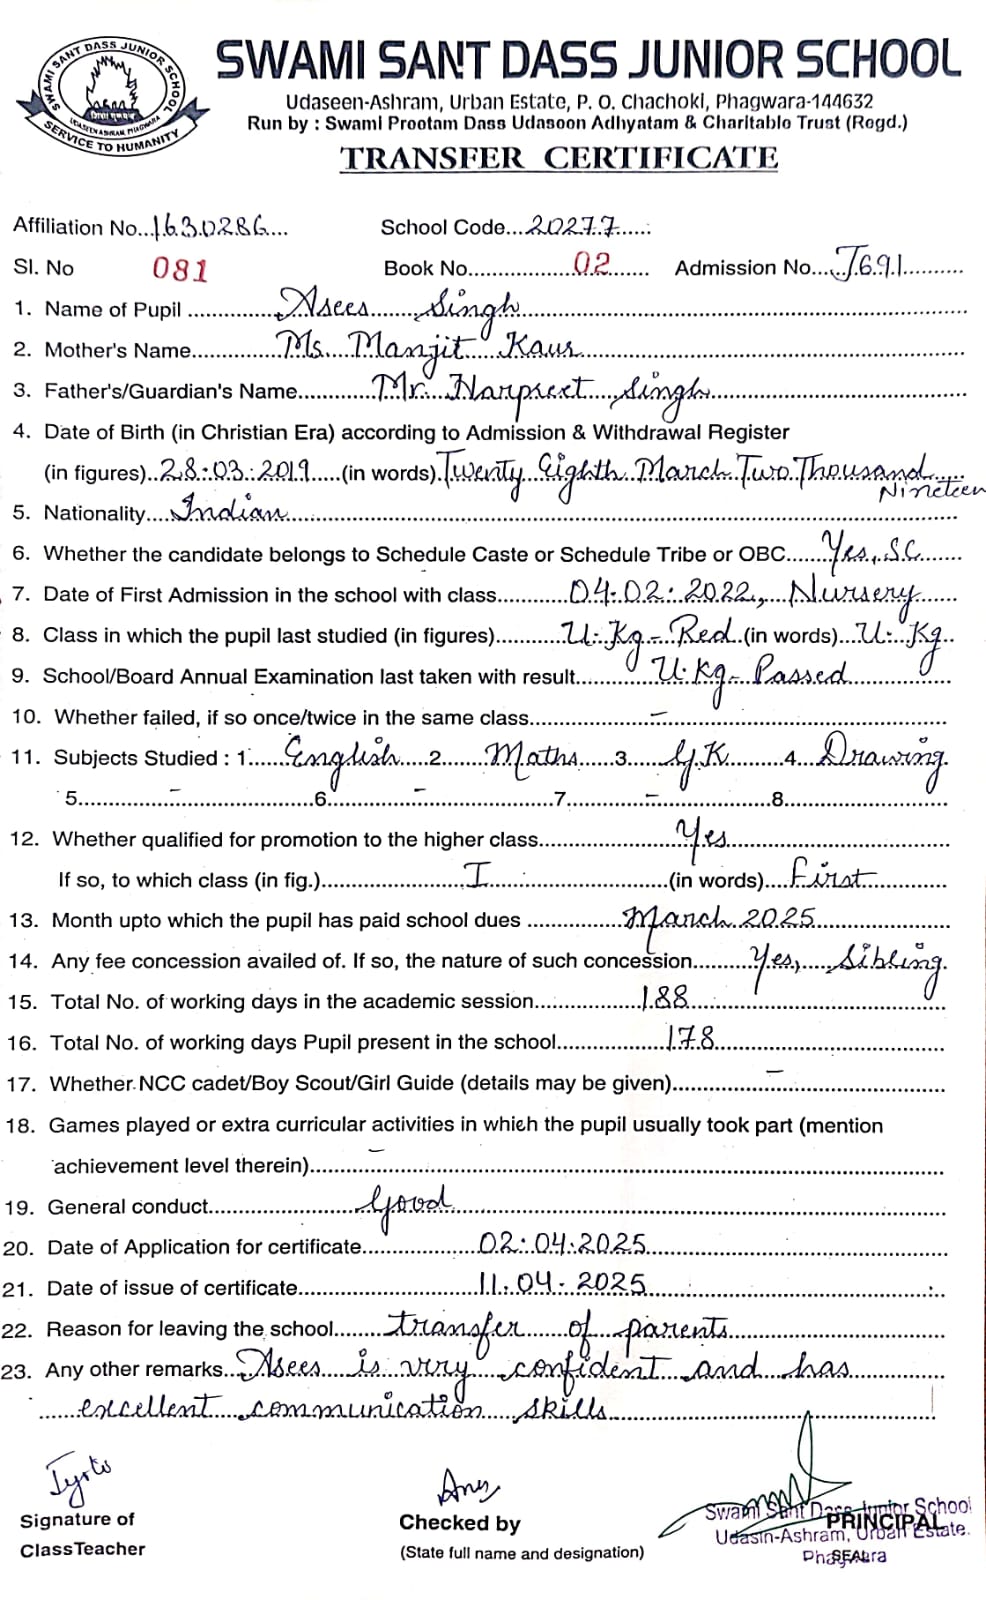 SWAMI SANT DASS JUNIOR SCHOOL
SERVICE TO HUMANITY
SWAMI SANT DASS JUNIOR SCHOOL
Udaseen-Ashram, Urban Estate, P. O. Chachoki, Phagwara-144632
Run by : Swami Preetam Dass Udaseen Adhyatam & Charitable Trust (Regd.)
TRANSFER CERTIFICATE
Affiliation No...1630286... School Code...20277......
Sl. No 081 Book No...02... Admission No...J691...
1. Name of Pupil ...Asees Singh...
2. Mother's Name...Ms. Manjit Kaur...
3. Father's/Guardian's Name...Mr. Harpreet Singh...
4. Date of Birth (in Christian Era) according to Admission & Withdrawal Register
(in figures)..28.03.2019...(in words).Twenty Eighth March Two Thousand
Nineteen
5. Nationality...Indian...
6. Whether the candidate belongs to Schedule Caste or Schedule Tribe or OBC...Yes, SC...
7. Date of First Admission in the school with class...04.02.2022, Nursery...
8. Class in which the pupil last studied (in figures)...U.Kg-Red..(in words)...U.Kg..
9. School/Board Annual Examination last taken with result...U.Kg- Passed...
10. Whether failed, if so once/twice in the same class...–...
11. Subjects Studied : 1...English...2...Maths...3...G.K...4...Drawing.
5...–...6...–...7...–...8...
12. Whether qualified for promotion to the higher class...Yes...
If so, to which class (in fig.)...I...(in words)...First...
13. Month upto which the pupil has paid school dues ...March 2025...
14. Any fee concession availed of. If so, the nature of such concession...Yes, Sibling.
15. Total No. of working days in the academic session...188...
16. Total No. of working days Pupil present in the school...178...
17. Whether NCC cadet/Boy Scout/Girl Guide (details may be given)...–...
18. Games played or extra curricular activities in which the pupil usually took part (mention
achievement level therein)...–...
19. General conduct...Good...
20. Date of Application for certificate...02.04.2025...
21. Date of issue of certificate...11.04.2025...
22. Reason for leaving the school...transfer of parents...
23. Any other remarks...Asees is very confident and has
...excellent communication skills...
Signature of
ClassTeacher
Checked by
(State full name and designation)
Swami Sant Dass Junior School
PRINCIPAL
Udasin-Ashram, Urban Estate.
Phagwara
SEAL